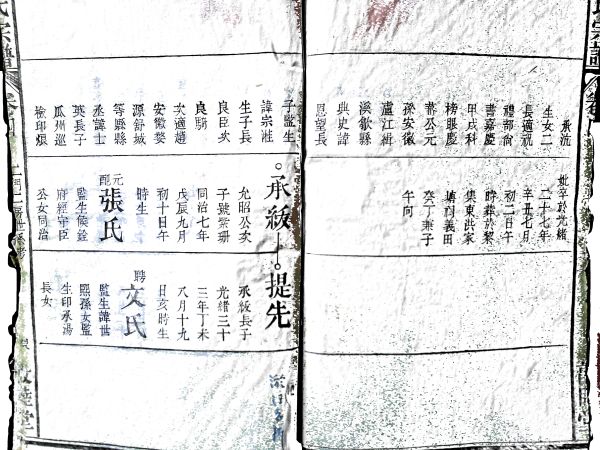 氏宗譜
承流
生女二
長適祝
禮部尙
書嘉慶
甲戌科
榜眼慶
蕃公元
孫安徽
廬江緝
溪歙縣
典史諱
恩望長
妣辛於光緒
二十七年
辛丑七月
初二日午
時葬於黎
集東洪家
塘祠義田
癸丁兼子
午向
氏宗譜
子監生
諱宗淮
生子長
良臣次
良騶
次適趙
安徽婺
源舒城
等縣縣
丞諱士
英長子
瓜州巡
檢印煨
承紱
允昭公次
子號紫珊
同治七年
戊辰九月
初十日午
時生
元配張氏
監生候銓
府經守臣
公女同治
提先
承紱長子
光緒三十
三年丁未
八月十九
日亥時生
聘文氏
監生諱世
熙孫女監
生印承湯
長女